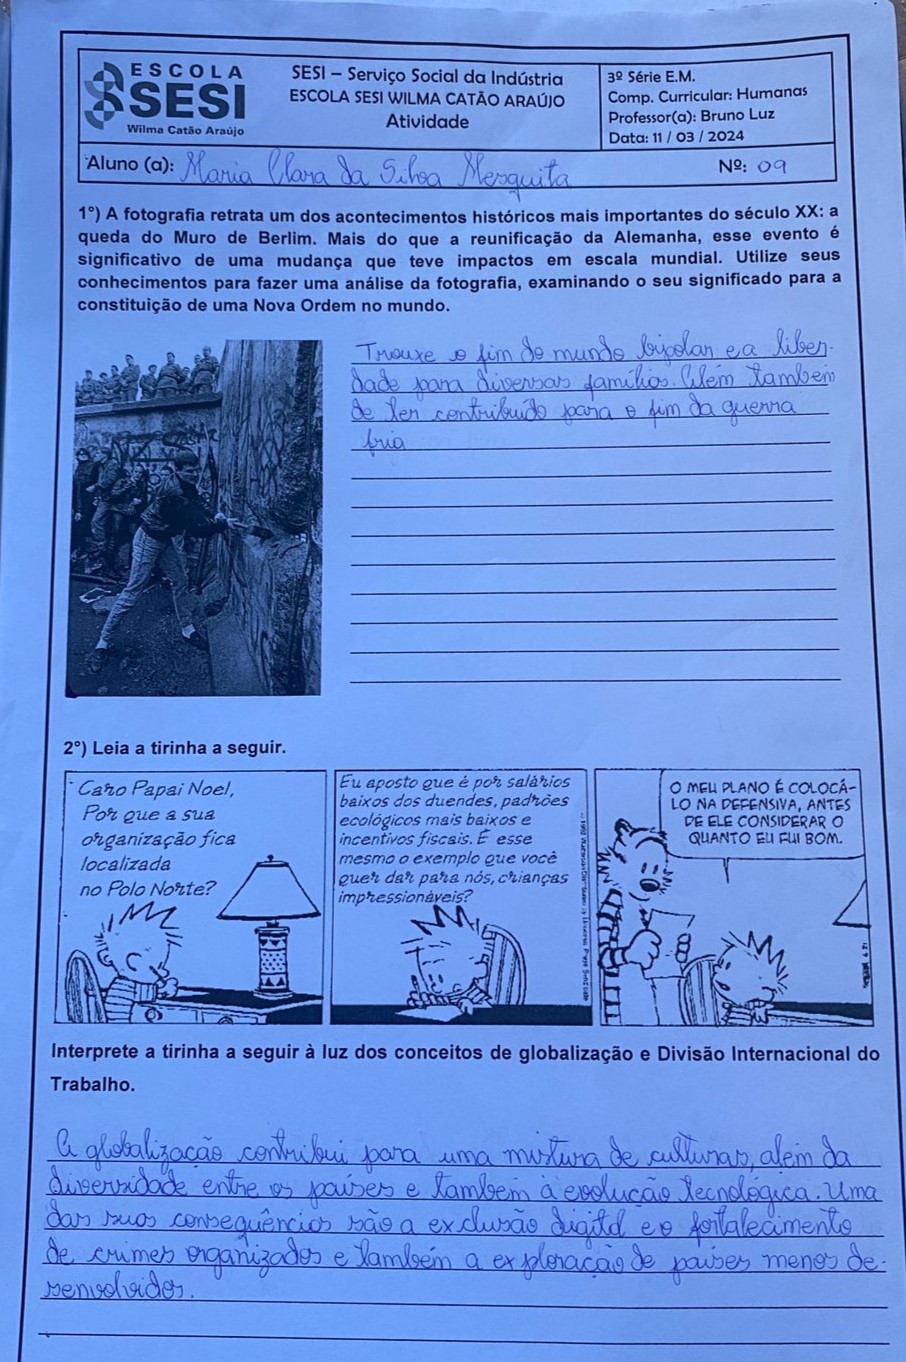 ESCOLA
SESI
Wilma Catão Araújo
SESI – Serviço Social da Indústria
ESCOLA SESI WILMA CATÃO ARAÚJO
Atividade
3º Série E.M.
Comp. Curricular: Humanas
Professor(a): Bruno Luz
Data: 11 / 03 / 2024
Aluno (a): Maria Clara da Silva Mesquita Nº: 09
1°) A fotografia retrata um dos acontecimentos históricos mais importantes do século XX: a
queda do Muro de Berlim. Mais do que a reunificação da Alemanha, esse evento é
significativo de uma mudança que teve impactos em escala mundial. Utilize seus
conhecimentos para fazer uma análise da fotografia, examinando o seu significado para a
constituição de uma Nova Ordem no mundo.
Trouxe o fim do mundo bipolar e a liber-
dade para diversas famílias. Além também
de ter contribuído para o fim da guerra
fria
2°) Leia a tirinha a seguir.
Caro Papai Noel,
Por que a sua
organização fica
localizada
no Polo Norte?
Eu aposto que é por salários
baixos dos duendes, padrões
ecológicos mais baixos e
incentivos fiscais. É esse
mesmo o exemplo que você
quer dar para nós, crianças
impressionáveis?
O MEU PLANO É COLOCÁ-
LO NA DEFENSIVA, ANTES
DE ELE CONSIDERAR O
QUANTO EU FUI BOM.
Interprete a tirinha a seguir à luz dos conceitos de globalização e Divisão Internacional do
Trabalho.
A globalização contribui para uma mistura de culturas, alem da
diversidade entre os países e também à evolução tecnológica. Uma
das suas consequências são a exclusão digital e o fortalecimento
de crimes organizados e também a exploração de países menos de-
senvolvidos.